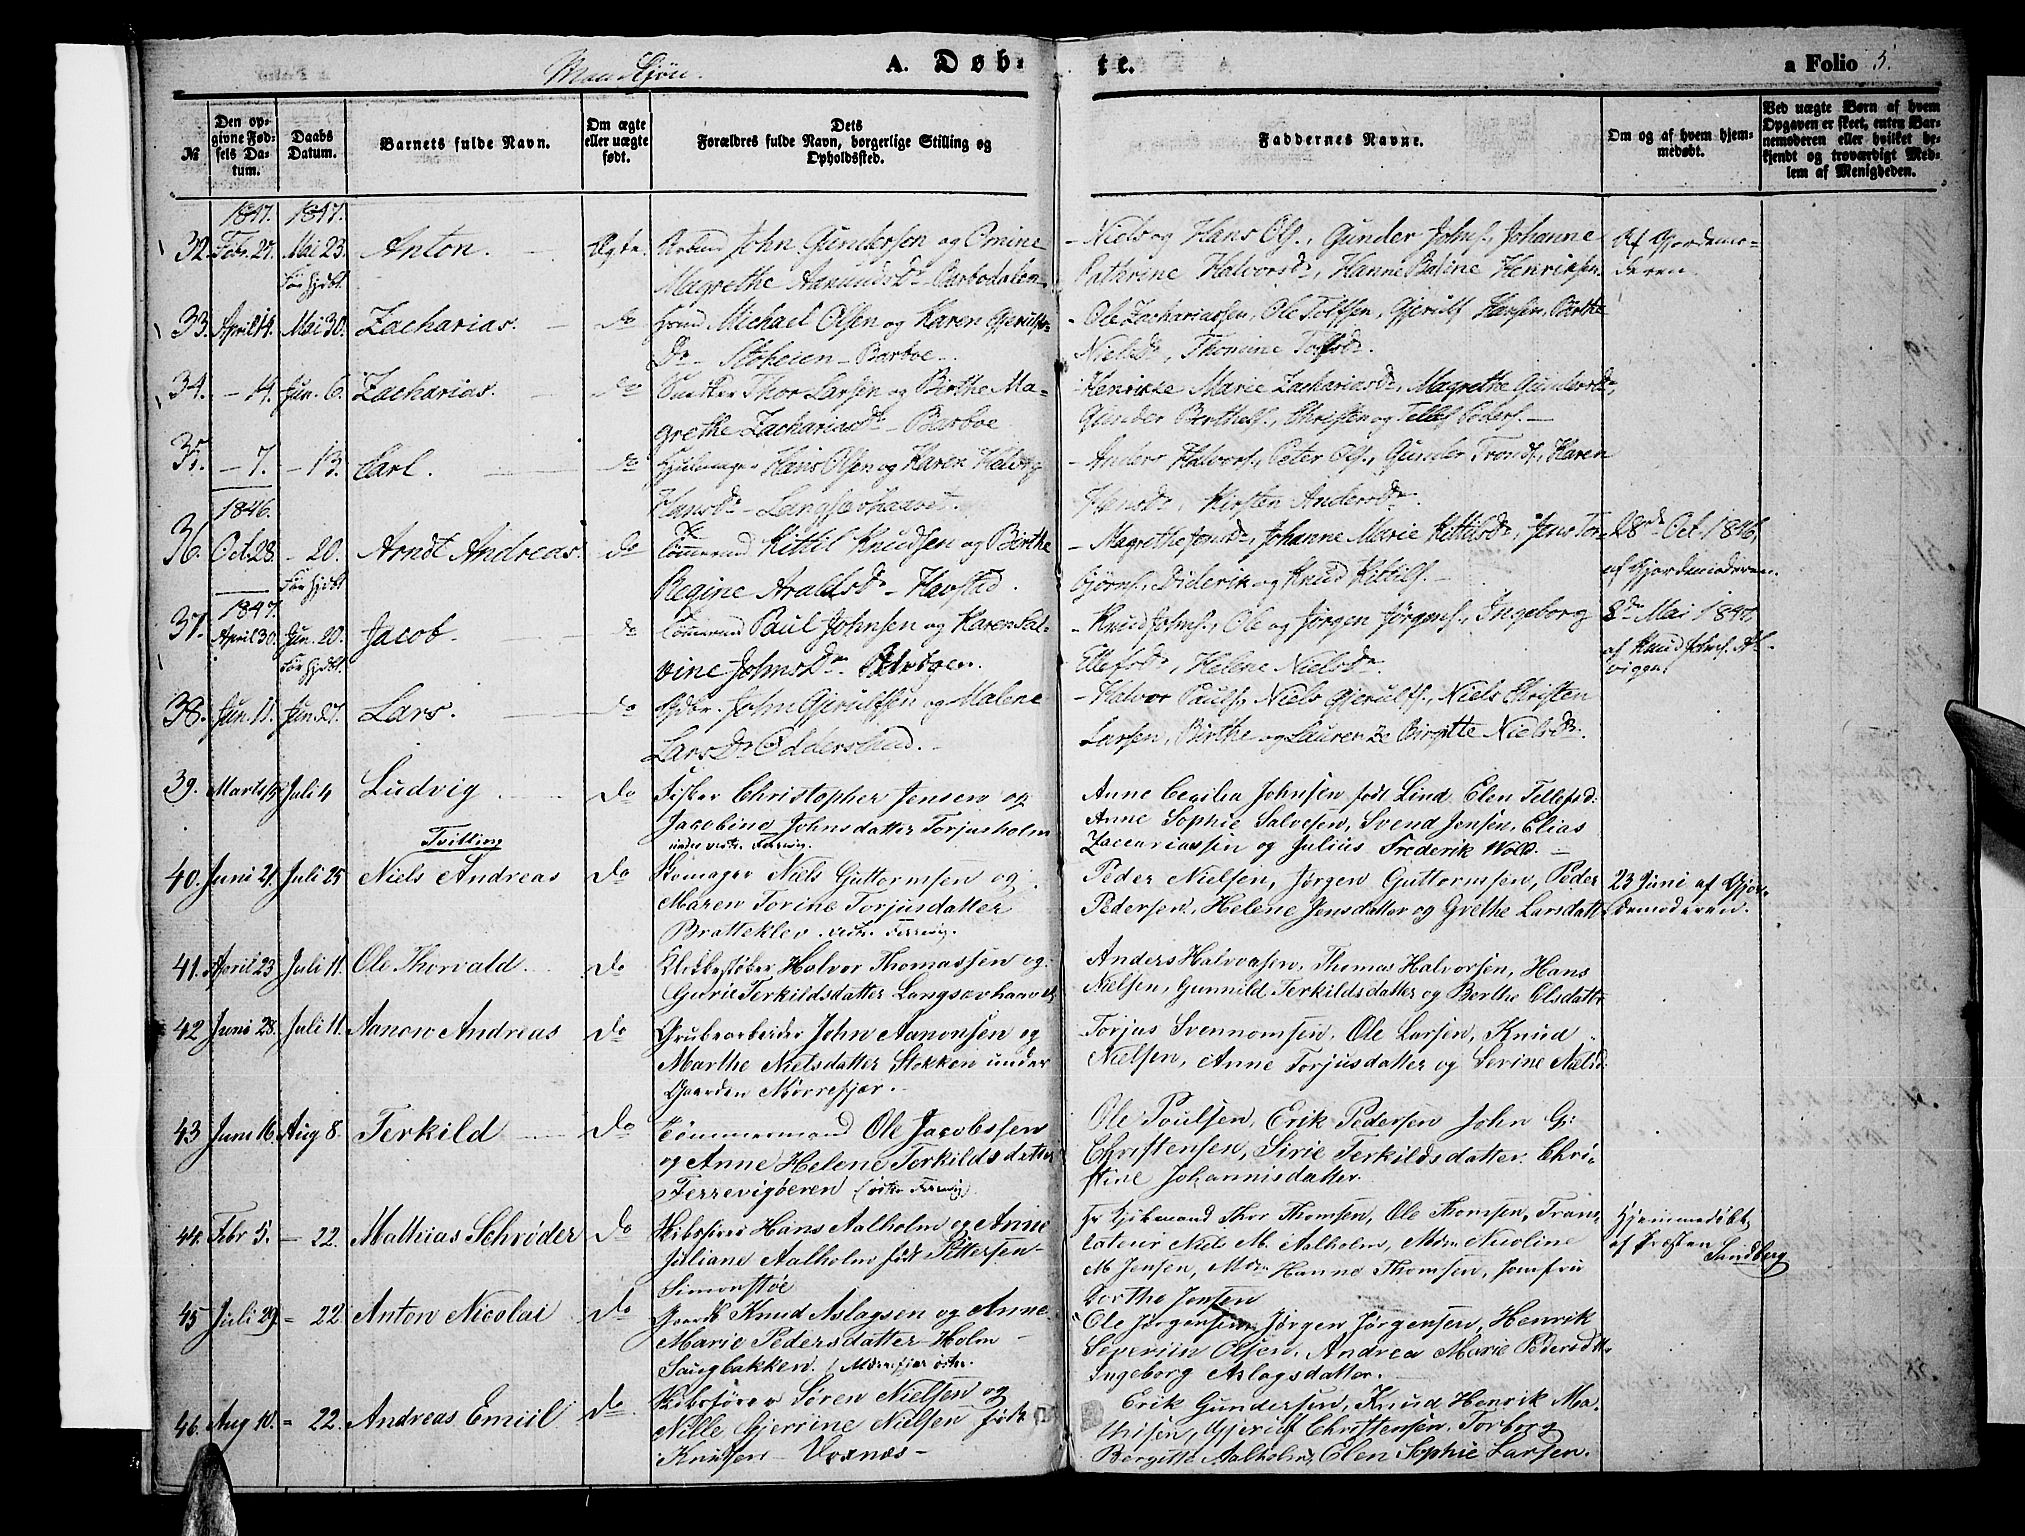 Mandkjøn.
A. Døbte.
a Folio 5.
№
Den opgivne Fødsels Datum.
Daabs Datum.
Barnets fulde Navn.
Om ægte eller uægte født.
Dets Forældres fulde Navn, borgerlige Stilling og Opholdssted.
Faddernes Navne.
Om og af hvem hjemmedøbt.
Ved uægte Børn af hvem Opgaven er skeet, enten Barnemoderen eller hvilket bekjendt og troværdigt Medlem af Menigheden.
1847. 1847.
32. Febr. 27. Mai 23. Anton. Ægte. John Gundersen og Omine
Magrethe Aamundsdr
Niels og Hans Ols., Gunder Johns., Johanne
Cathrine Halvorsdr, Hanne Henriksen
Af Gjordemo-
deren.
33. April 14. Mai 30. Zacharias. do Michael Olsen og Karen Gjerulfs-
Dr Stoheien - Barboe.
Ole Zachariassen, Ole Tolfsen, Gjerulf Hansen, Birthe
Nielsdr, Thomine
34. - 14. Jun. 6. Zacharias. do Thor Larsen og Birthe Ma-
grethe Zachariasdr - Barboe
Henrikke Marie Zachariasdr, Magrethe
Gunder Berthels., Christen og Tellef
35. - 7. - 13. Carl. do Hjulmager Hans Olsen og Karen
Hansdr - Langsævhauvet
Anders Halvors., Peter Ols., Gunder Tronds., Karen
Hansdr, Kirsten Andersdr
1846.
36. Oct. 28. - 20. Arndt Andreas. do Tømmermd Kittil Knudsen og Birthe
Før hjdbt
Regine Araldsdr - Havstad.
Magrethe Jensdr, Johanne Marie Kittilsdr, Jens Tor-
bjørns., Diderik og Knud Kittils.
28de Oct. 1846,
af Gjordemoderen.
1847.
37. April 30. Jun. 20. Jacob. do Tømmermd Paul Johnsen og Karen Sal-
Før hjdbt
vine Johnsdr
Knud Johns., Ole og Jørgen Jørgens., Ingeborg
Ellefsdr, Helene Nielsdr
Mai 1847
af Knud Johns.
38. Jun. 11. Jun. 27. Lars. do John Gjerulfsen og Malene
Larsdr
Halvor Pauls., Niels Gjerulfs., Niels Christen
Larsen, Birthe og Laurenze Birgitte Nielsdr.
39. Marts Juli 4 Ludvig do Fisker Christopher Jensen og
Jacobine Johnsdatter Torjusholm
under vestr. Ferrevig.
Anne Cecilia Johnsen født Lind Elen Tellefsd:
Anne Sophie Salvesen, Svend Jensen, Elias
Zaccariassen og Julius Frederik Wold.
Tvilling
40. Juni 21. Juli 25 Niels Andreas do Skomager Niels Guttormsen og
Maren Torine Torjusdatter
Bratteklev vestr. Ferrevig.
Peder Nielsen, Jørgen Guttormsen, Peder
Pedersen, Helene Jensdatter og Grethe Larsdatt
23 Juni af Gjor-
demoderen.
41. April 23 Juli 11. Ole Thorvald do Klokkestøber Halvor Thomassen og
Gurie Terkildsdatter Langsævhauvet
Anders Halvorsen, Thomas Halvorsen, Hans
Nielsen, Gunnild Terkildsdatter og Berthe Olsdatter
42 Juni 28. Juli 11. Aanon Andreas do Grubearbeider John Aanonsen og
Marthe Nielsdatter Stokken under
Gaarden Mørrefjær.
Torjus Svennomsen, Ole Larsen, Knud
Nielsen, Anne Torjusdatter og Serine Nielsd:
43 Juni 16. Aug 8. Terkild do Tømmermand Ole Jacobssen
og Anne Helene Terkildsdatter
Ferrevigøeren (østre Ferrevig)
Ole Poulsen, Erik Pedersen John G:
Christensen, Sirie Terkildsdatter, Chri-
stine Johannisdatter.
44. Febr 5. - 22. Mathias Schrøder do Skibsfører Hans Aalholm og Anne
Juliane Aalholm født Pettersen
Simonstøe
Hr Kjøbmand Thor Thomsen, Ole Thomsen, Trans-
lateur Niels M. Aalholm, Mdm Nicoline
M Jensen, Mdm Hanne Thomsen, Jomfru
Dorthe Jensen
Hjemmedøbt
af Præsten
Sundberg
45 Juli 29 - 22. Anton Nicolai do Gaardb. Knud Aslagsen og Anne
Marie Pedersdatter Holm
Saugbakken. (Mørrefjær østre.
Ole Jørgensen, Jørgen Jørgensen, Henrik
Severin Olsen, Andrea Marie Pedersdtt.
Ingeborg Aslagsdatter.
46. Aug 10. - 22. Andreas Emiil do Skibsfører Søren Nielsen og
Nille Gjerrine Nielsen født
Knutsen - Voxnæs
Erik Gundersen, Knud Henrik Ma-
thisen, Gjerulf Christensen, Torborg
Bergitte Aalholm, Elen Sophie Larsen.